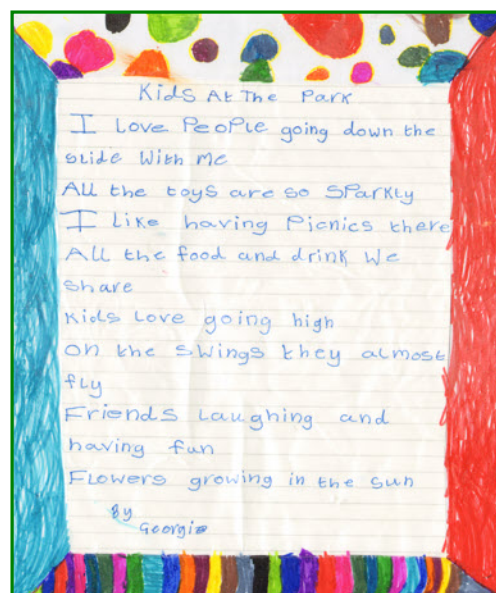 Kids At The Park
I Love PeoPle going down the
slide With me
All the toys are so SParkly
I like having Picnics there
All the food and drink We
Share
Kids Love going high
On the swings they almost
fly
Friends Laughing and
having fun
Flowers growing in the sun
By
Georgia